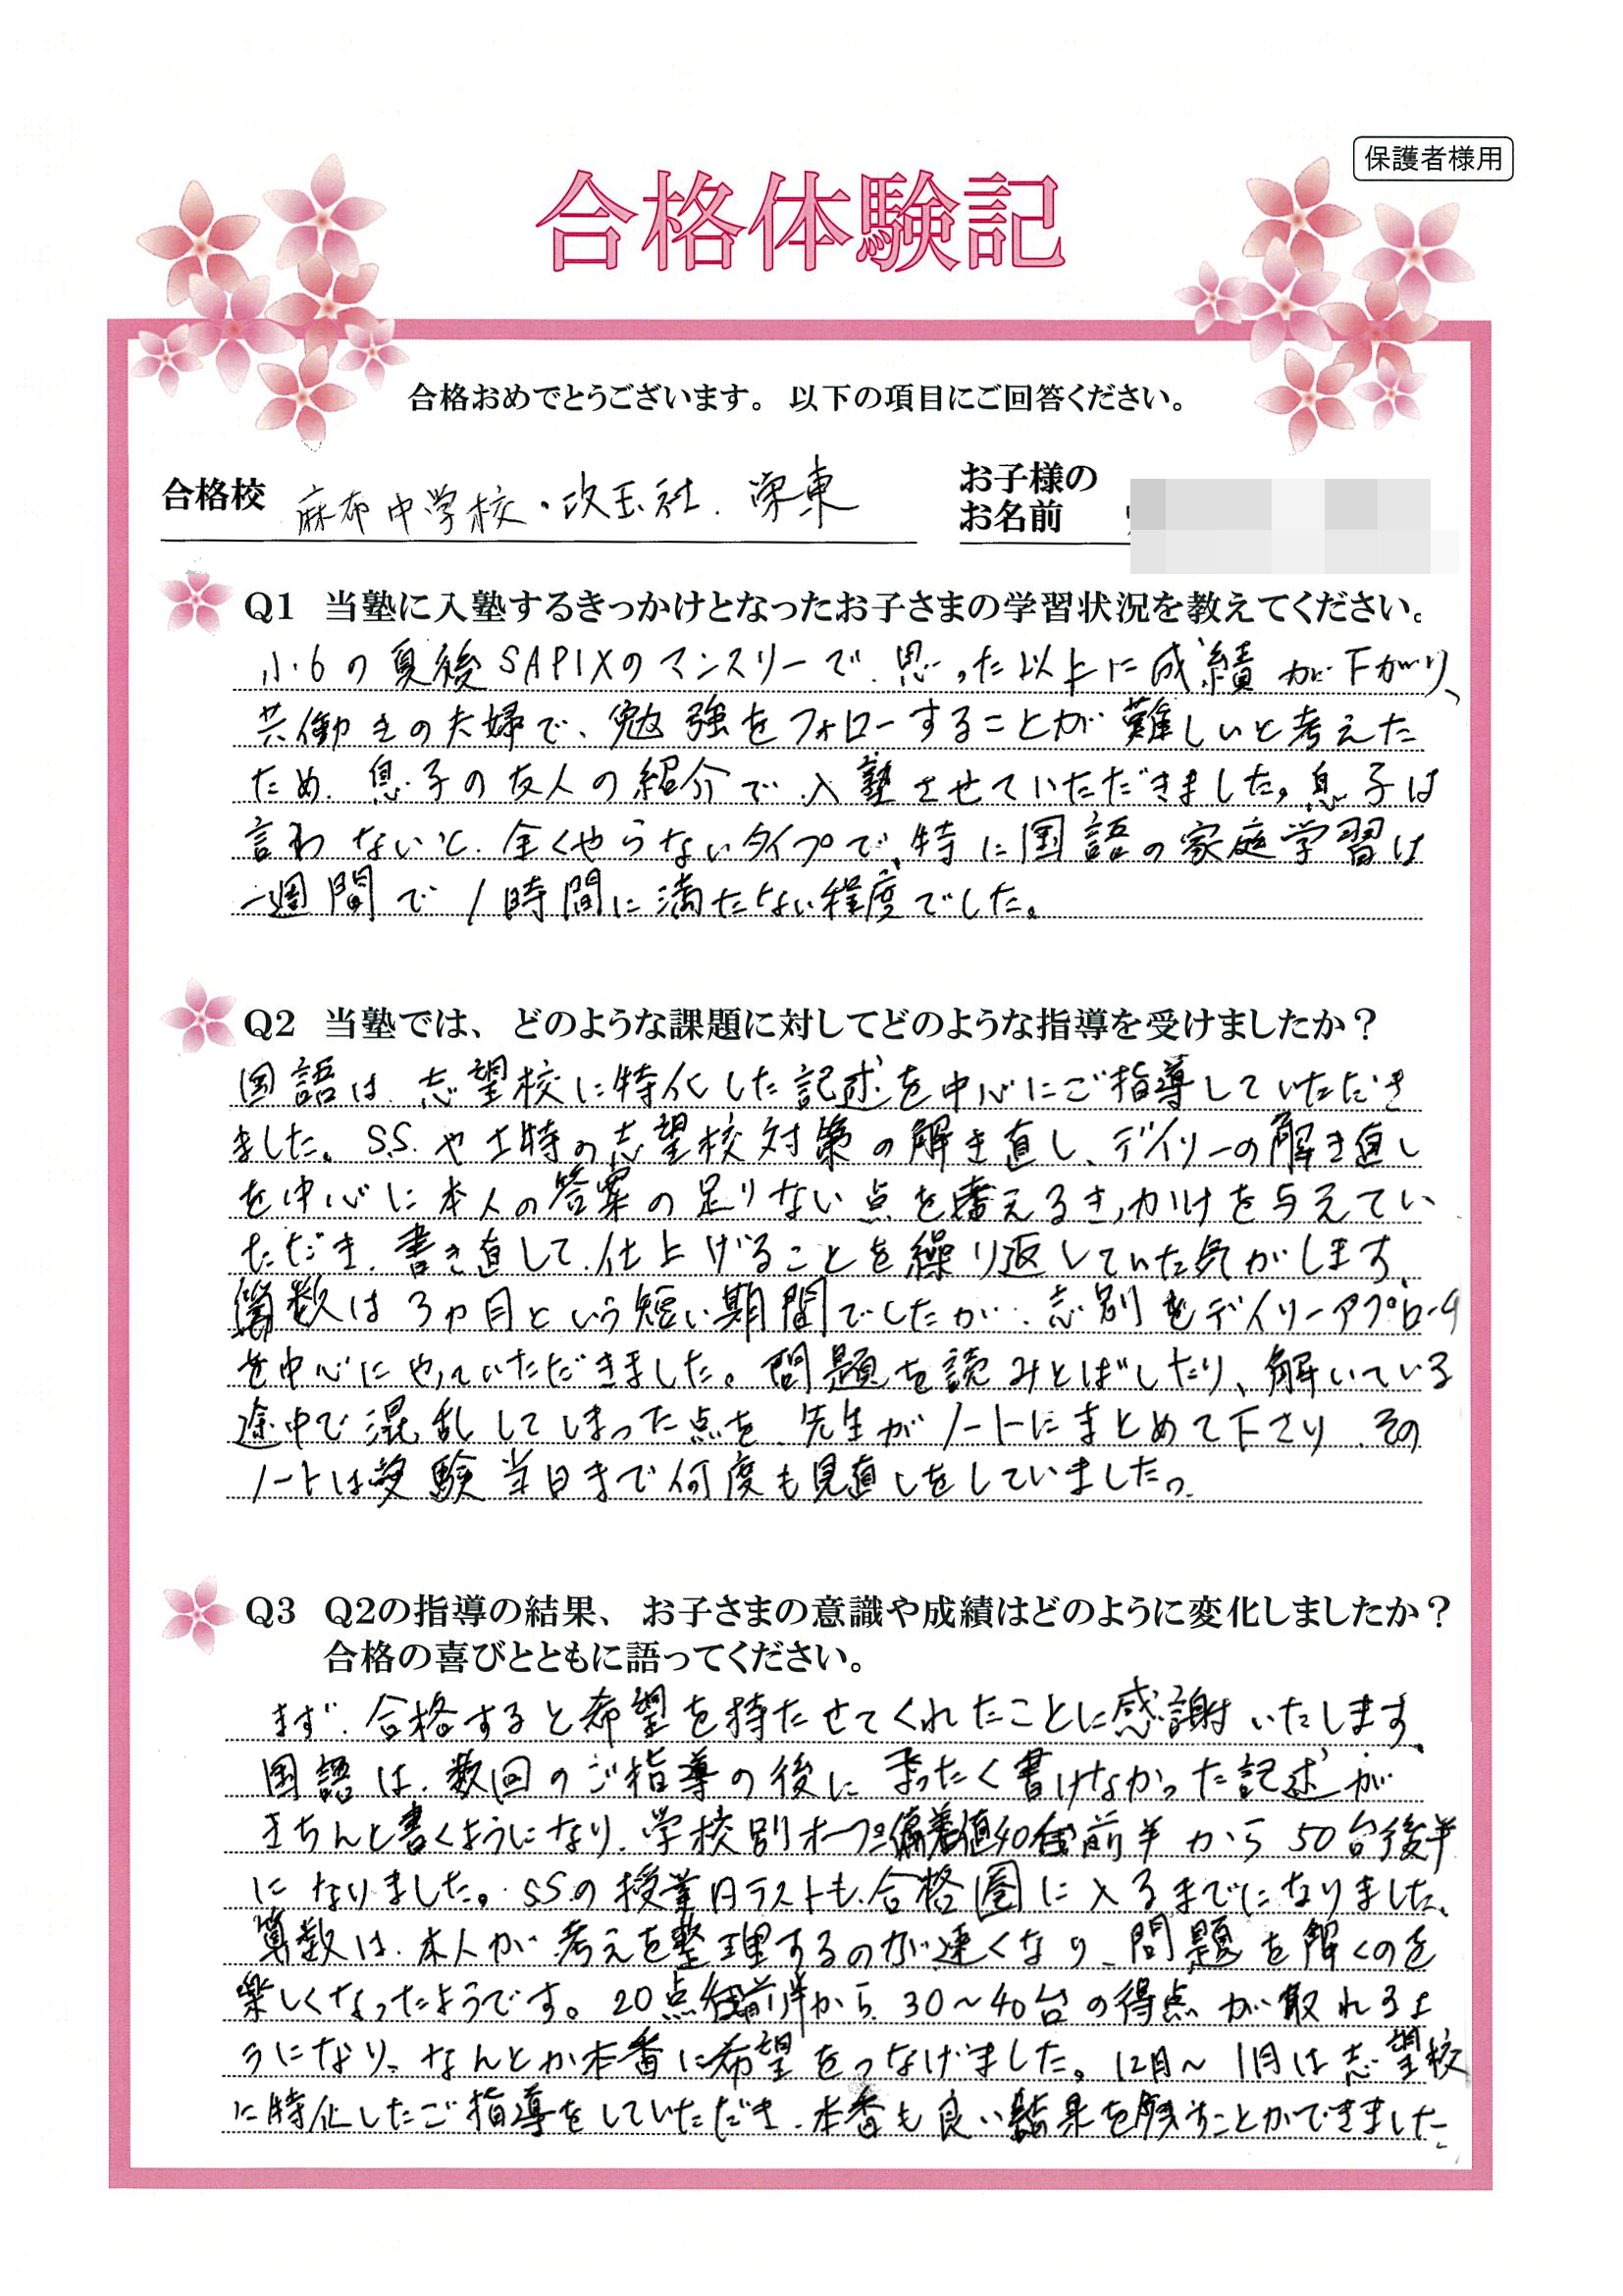 保護者様用
合格体験記
合格おめでとうございます。以下の項目にご回答ください。
合格校 麻布中学校・攻玉社、栄東
お子様の
お名前
Q1 当塾に入塾するきっかけとなったお子さまの学習状況を教えてください。
小6の夏後SAPIXのマンスリーで、思った以上に成績が下がり、
共働きの夫婦で、勉強をフォローすることが難しいと考えた
ため、息子の友人の紹介で入塾させていただきました。息子は
言わないと、全くやらないタイプで、特に国語の家庭学習は
一週間で1時間に満たない程度でした。
Q2 当塾では、どのような課題に対してどのような指導を受けましたか？
国語は、志望校に特化した記述を中心にご指導していただき
ました。S.S.や土特の志望校対策の解き直し、デイリーの解き直し
を中心に本人の答案の足りない点を考えるきっかけを与えてい
ただき、書き直して、仕上げることを繰り返していた気がします。
算数は3ヵ月という短い期間でしたが、志別をデイリーアプローチ
を中心にやっていただきました。問題を読みとばしたり、解いている
途中で混乱してしまった点を、先生がノートにまとめて下さり、その
ノートは受験当日まで何度も見直しをしていました。
Q3 Q2の指導の結果、お子さまの意識や成績はどのように変化しましたか？
合格の喜びとともに語ってください。
まず、合格すると希望を持たせてくれたことに感謝いたします。
国語は、数回のご指導の後に まったく書けなかった記述が
きちんと書くようになり、学校別オープン偏差値40台前半から50台後半
になりました。SSの授業内テストも、合格圏に入るまでになりました。
算数は、本人が考えを整理するのが速くなり、問題を解くのを
楽しくなったようです。20点台前半から、30～40台の得点が取れるよ
うになり、なんとか本番に希望をつなげました。12月～1月は志望校
に特化したご指導をしていただき、本番も良い結果を残すことができました。